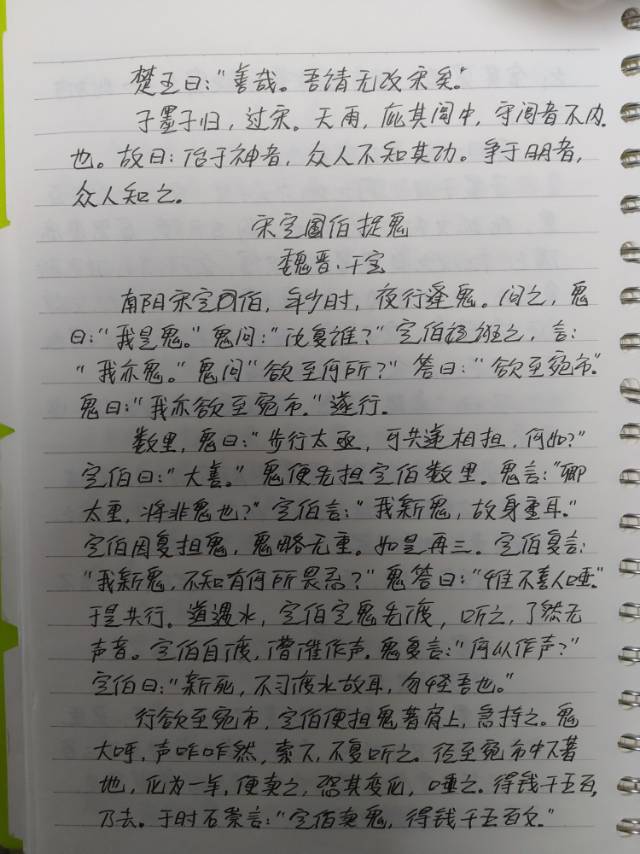 楚王曰：“善哉。吾请无攻宋矣。”
子墨子归，过宋。天雨，庇其闾中，守闾者不内
也。故曰：治于神者，众人不知其功。争于明者，
众人知之。
宋定国伯捉鬼
魏晋·干宝
南阳宋定伯，年少时，夜行逢鬼。问之，鬼
曰：“我是鬼。”鬼问：“汝复谁？”定伯诳之，言：
“我亦鬼。”鬼问“欲至何所？”答曰：“欲至宛市”。
鬼曰：“我亦欲至宛市。”遂行。
数里，鬼曰：“步行太亟，可共递相担，何如？”
定伯曰：“大善。”鬼便先担定伯数里。鬼言：“卿
太重，将非鬼也？”定伯言：“我新鬼，故身重耳。”
定伯因复担鬼，鬼略无重。如是再三。定伯复言：
“我新鬼，不知有何所畏忌？”鬼答曰：“惟不喜人唾。”
于是共行。道遇水，定伯令鬼先渡，听之，了然无
声音。定伯自渡，漕漼作声。鬼复言：“何以作声？”
定伯曰：“新死，不习渡水故耳，勿怪吾也。”
行欲至宛市，定伯便担鬼著肩上，急持之。鬼
大呼，声咋咋然，索下，不复听之。径至宛市中下著
地，化为一羊，便卖之，恐其变化，唾之。得钱千五百，
乃去。于时石崇言：“定伯卖鬼，得钱千五百文。”